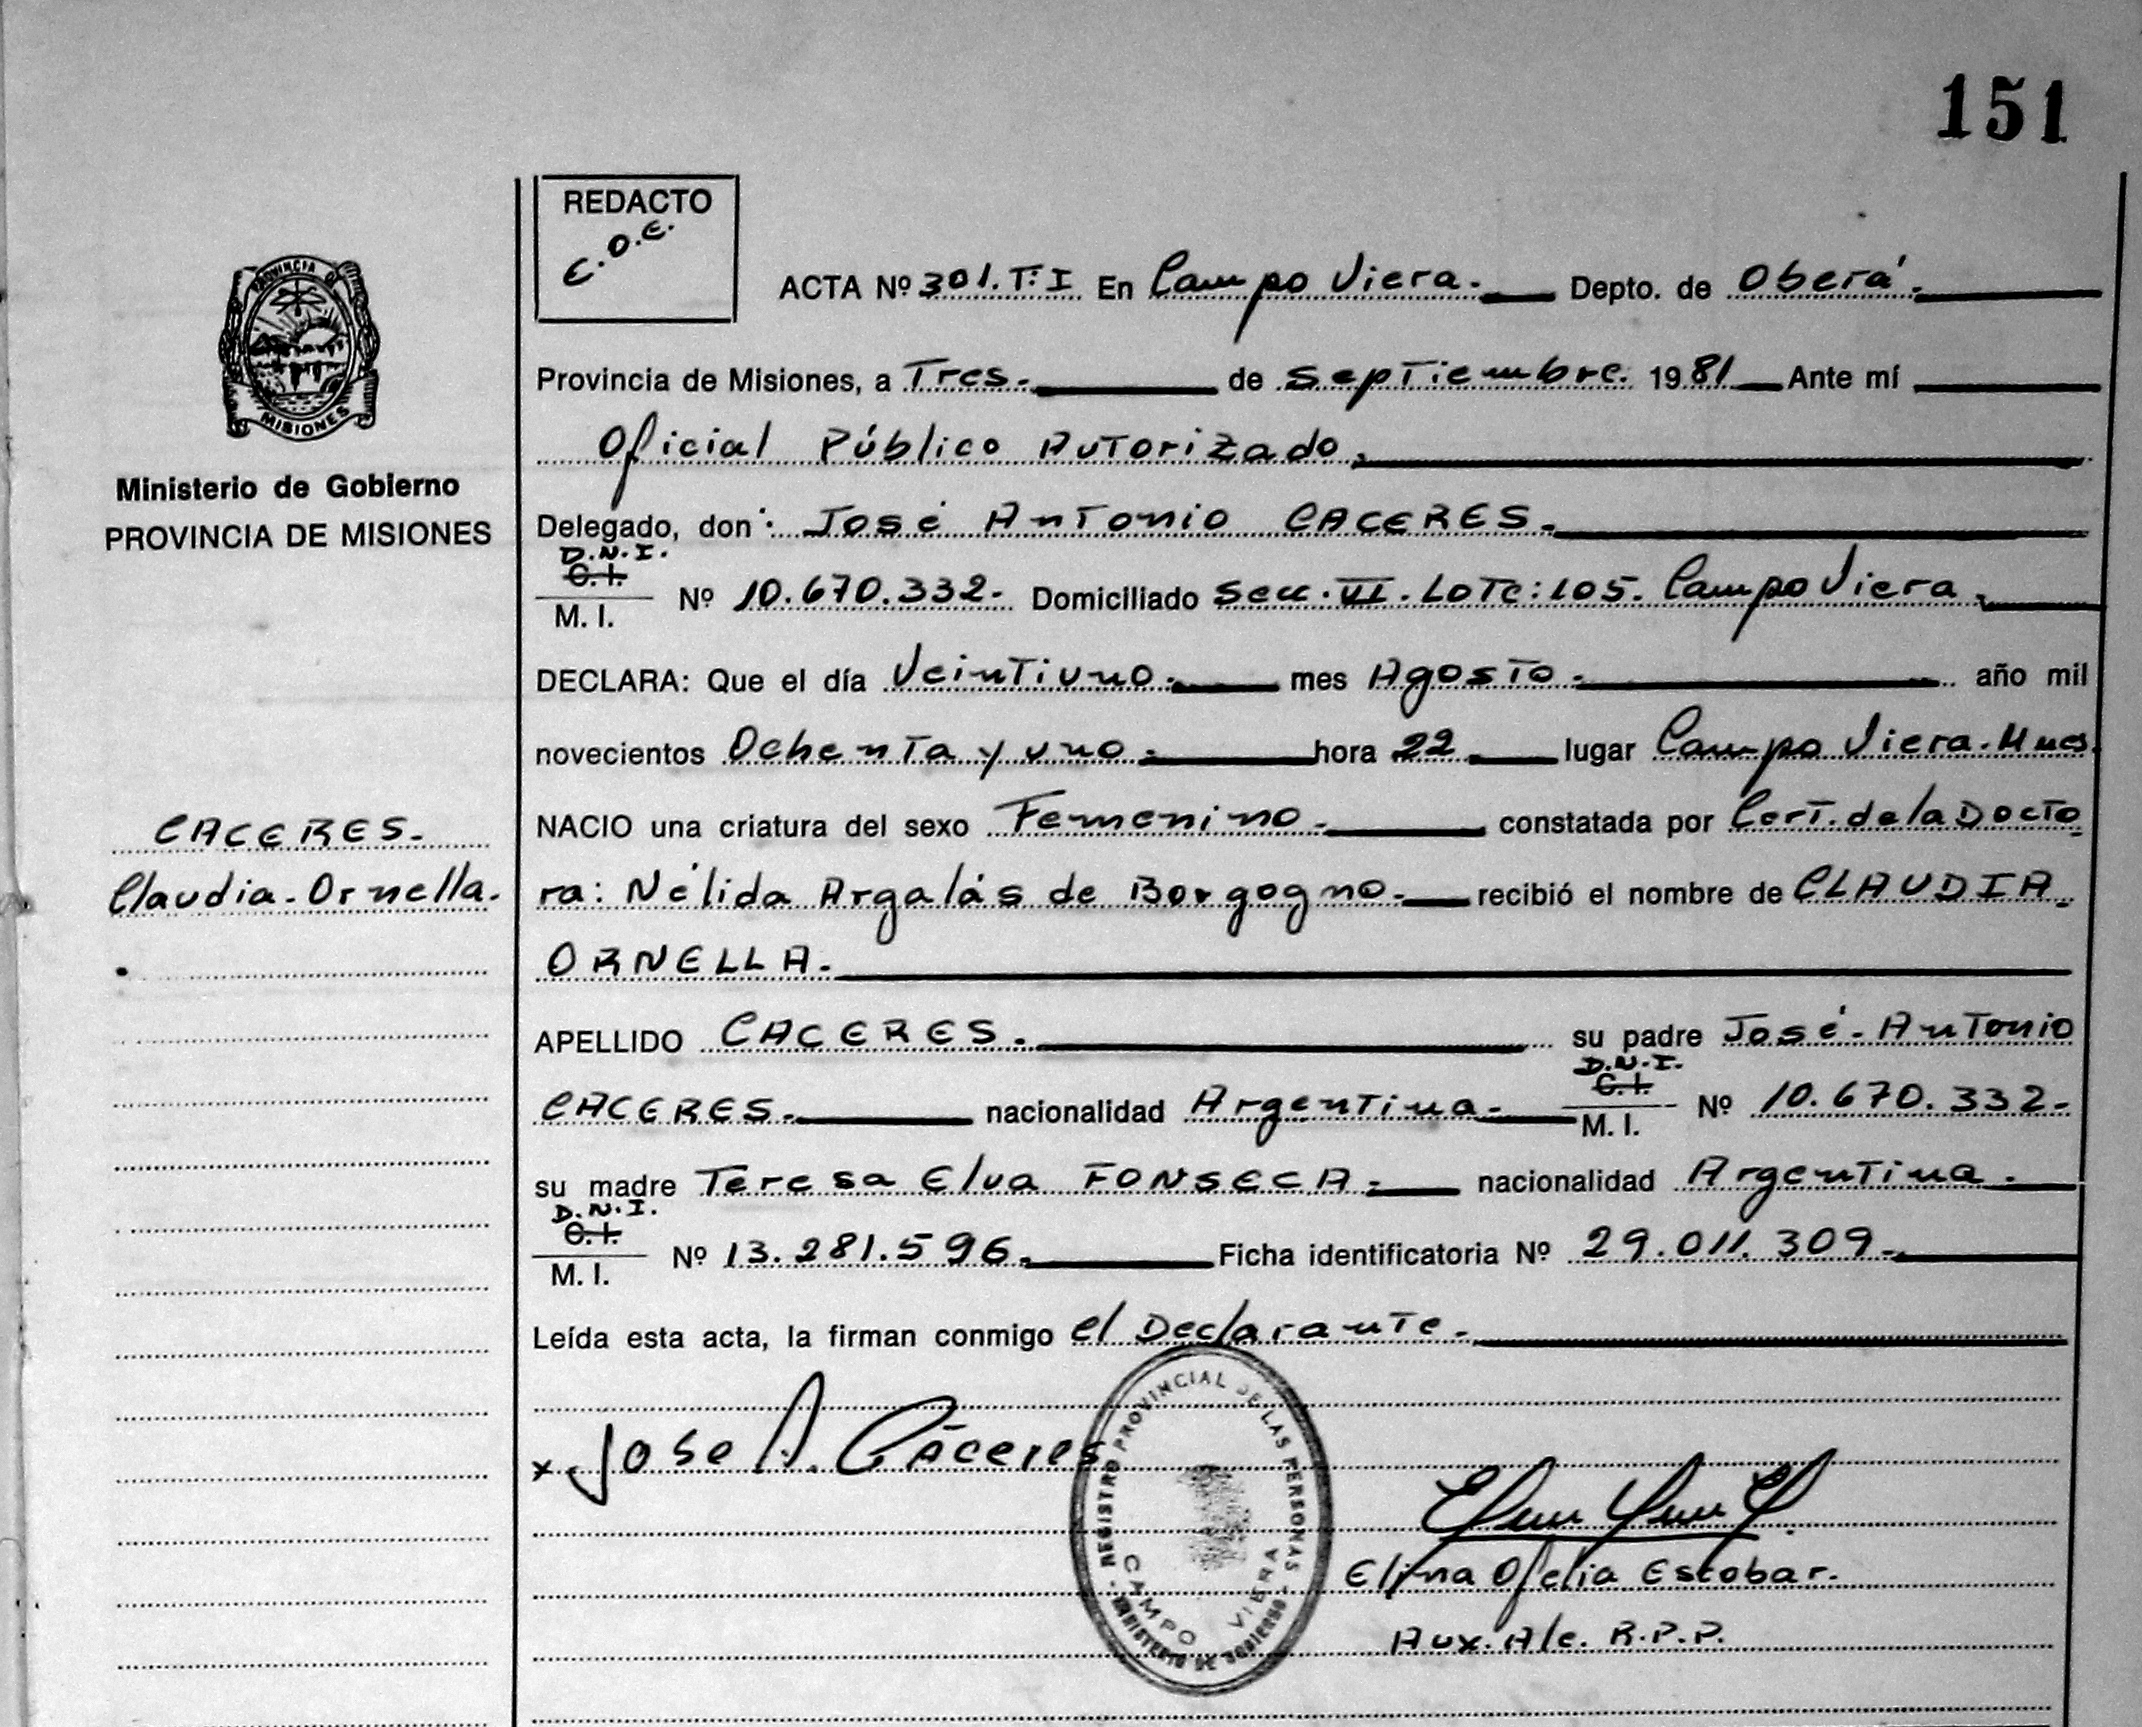 151
REDACTO
E.O.E.
ACTA Nº 301.T:I En Campo Viera. Depto. de Oberá.
Provincia de Misiones, a Tres. de septiembre. 1981 Ante mí
Oficial Público Autorizado.
Delegado, don: José Antonio CACERES.
D.N.I.
C.I.
M. I. Nº 10.670.332. Domiciliado Secc. VI. Lote: 105. Campo Viera.
DECLARA: Que el día Veintiuno. mes Agosto. año mil
novecientos Ochenta y uno. hora 22 lugar Campo Viera. Mnes.
NACIO una criatura del sexo Femenino. constatada por Cert. de la Docto
ra: Nélida Argalás de Borgogno. recibió el nombre de CLAUDIA
ORNELLA.
APELLIDO CACERES. su padre José-Antonio
D.N.I.
C.I.
CACERES. nacionalidad Argentina. M. I. Nº 10.670.332.
su madre Teresa Elva FONSECA. nacionalidad Argentina.
D.N.I.
C.I.
M. I. Nº 13.281.596. Ficha identificatoria Nº 29.011.309.
Leída esta acta, la firman conmigo el Declarante.
x Jose A. Cáceres
REGISTRO PROVINCIAL DE LAS PERSONAS
CAMPO VIERA
MINISTERIO DE GOBIERNO
Elina Ofelia Escobar.
Aux. A/c. R.P.P.
PROVINCIA DE
MISIONES
Ministerio de Gobierno
PROVINCIA DE MISIONES
CACERES.
Claudia-Ornella.